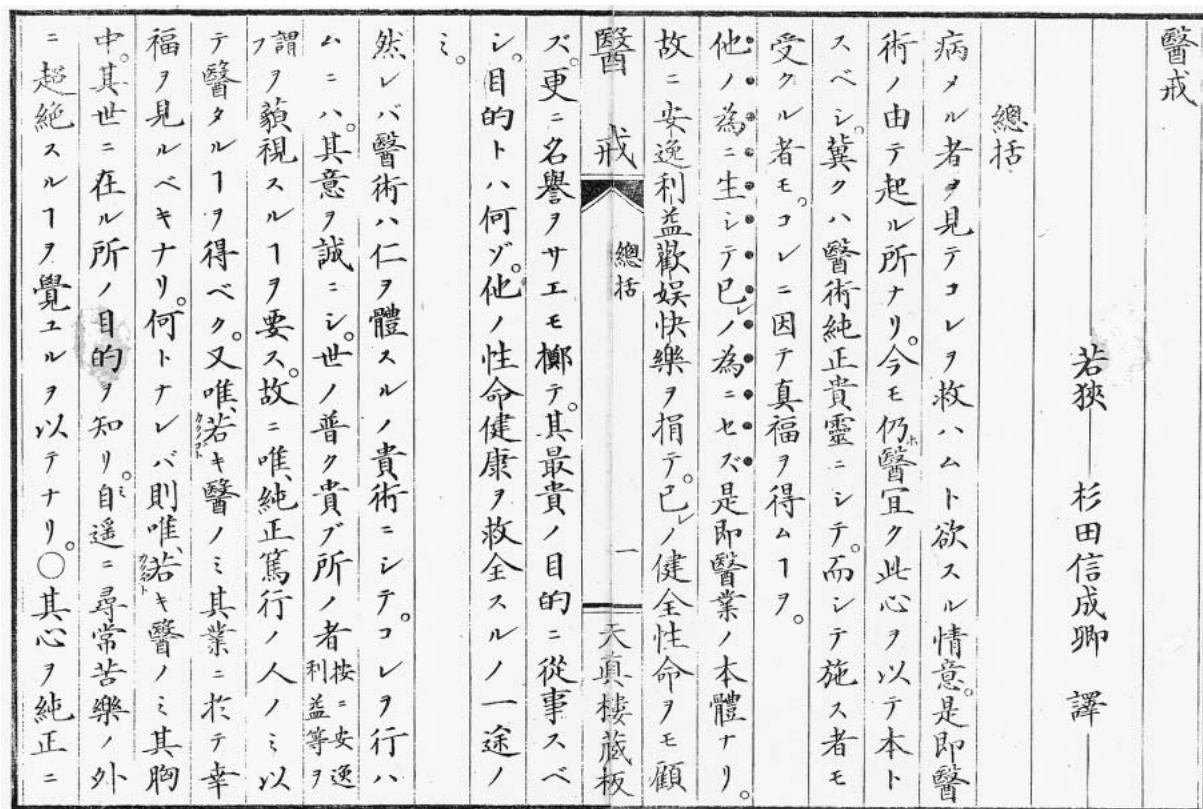 醫戒
若狹 杉田信成卿 譯
總括
病メル者ヲ見テコレヲ救ハムト欲スル情意。是即醫
術ノ由テ起ル所ナリ。今モ仍ホ醫宜ク此心ヲ以テ本ト
スベシ。冀クハ醫術純正貴靈ニシテ。而シテ施ス者モ
受クル者モ。コレニ因テ真福ヲ得ムヿヲ。
他ノ為ニ生シテ己レノ為ニセズ是即醫業ノ本體ナリ。
故ニ安逸利益歡娯快樂ヲ捐テ。己レノ健全性命ヲモ顧
醫戒 總括 一 天真樓藏板
ズ。更ニ名譽ヲサエモ擲テ。其最貴ノ目的ニ從事スベ
シ。目的トハ何ゾ。他ノ性命健康ヲ救全スルノ一途ノ
ミ。
然レバ醫術ハ仁ヲ體スルノ貴術ニシテ。コレヲ行ハ
ムニハ。其意ヲ誠ニシ。世ノ普ク貴ブ所ノ者按ニ安逸利益等ヲ
謂フヲ藐視スルヿヲ要ス。故ニ唯、純正篤行ノ人ノミ以
テ醫タルヿヲ得ベク。又唯、若カクノゴトキ醫ノミ其業ニ於テ幸
福ヲ見ルベキナリ。何トナレバ則唯、若カクノゴトキ醫ノミ其胸
中。其世ニ在ル所ノ目的ヲ知リ。自ミ遥ニ尋常苦樂ノ外
ニ超絶スルヿヲ覺ユルヲ以テナリ。○其心ヲ純正ニ